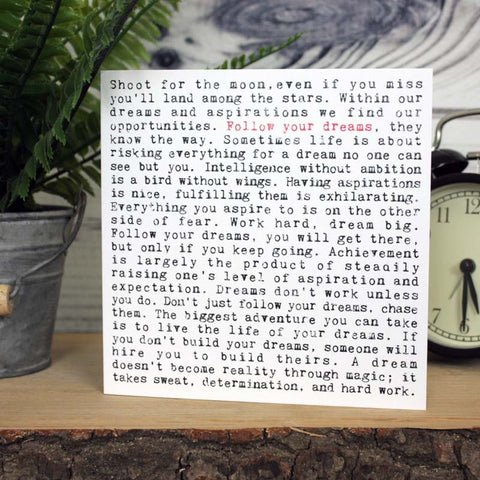 Shoot for the moon,even if you miss
you'll land among the stars. Within our
dreams and aspirations we find our
opportunities. Follow your dreams, they
know the way. Sometimes life is about
risking everything for a dream no one can
see but you. Intelligence without ambition
is a bird without wings. Having aspirations
is nice, fulfilling them is exhilarating.
Everything you aspire to is on the other
side of fear. Work hard, dream big.
Follow your dreams, you will get there,
but only if you keep going. Achievement
is largely the product of steadily
raising one's level of aspiration and
expectation. Dreams don't work unless
you do. Don't just follow your dreams, chase
them. The biggest adventure you can take
is to live the life of your dreams. If
you don't build your dreams, someone will
hire you to build theirs. A dream
doesn't become reality through magic; it
takes sweat, determination, and hard work.
12
1
2
3
4
5
6